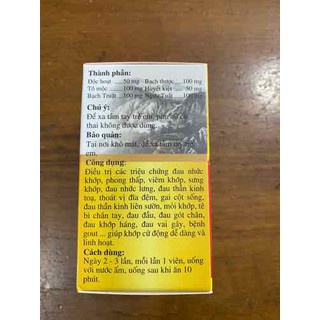 Thành phần:
Độc hoạt ..... 50 mg Bạch thược ..... 100 mg
Tô mộc ..... 100 mg Huyết kiệt ..... 50 mg
Bạch Truật ... 100 mg Ngưu Tất ..... 100 mg
Chú ý:
Để xa tầm tay trẻ em, phụ nữ có
thai không được dùng.
Bảo quản:
Tại nơi khô mát, để xa tầm tay trẻ
em.
Công dụng:
Điều trị các triệu chứng đau nhức
khớp, phong thấp, viêm khớp, sưng
khớp, đau nhức lưng, đau thần kinh
toạ, thoát vị đĩa đệm, gai cột sống,
đau thần kinh liên sườn, mỏi khớp, tê
bì chân tay, đau đầu, đau gót chân,
đau khớp háng, đau vai gáy, bệnh
gout ... giúp khớp cử động dễ dàng và
linh hoạt.
Cách dùng:
Ngày 2 - 3 lần, mỗi lần 1 viên, uống
với nước ấm, uống sau khi ăn 10
phút.